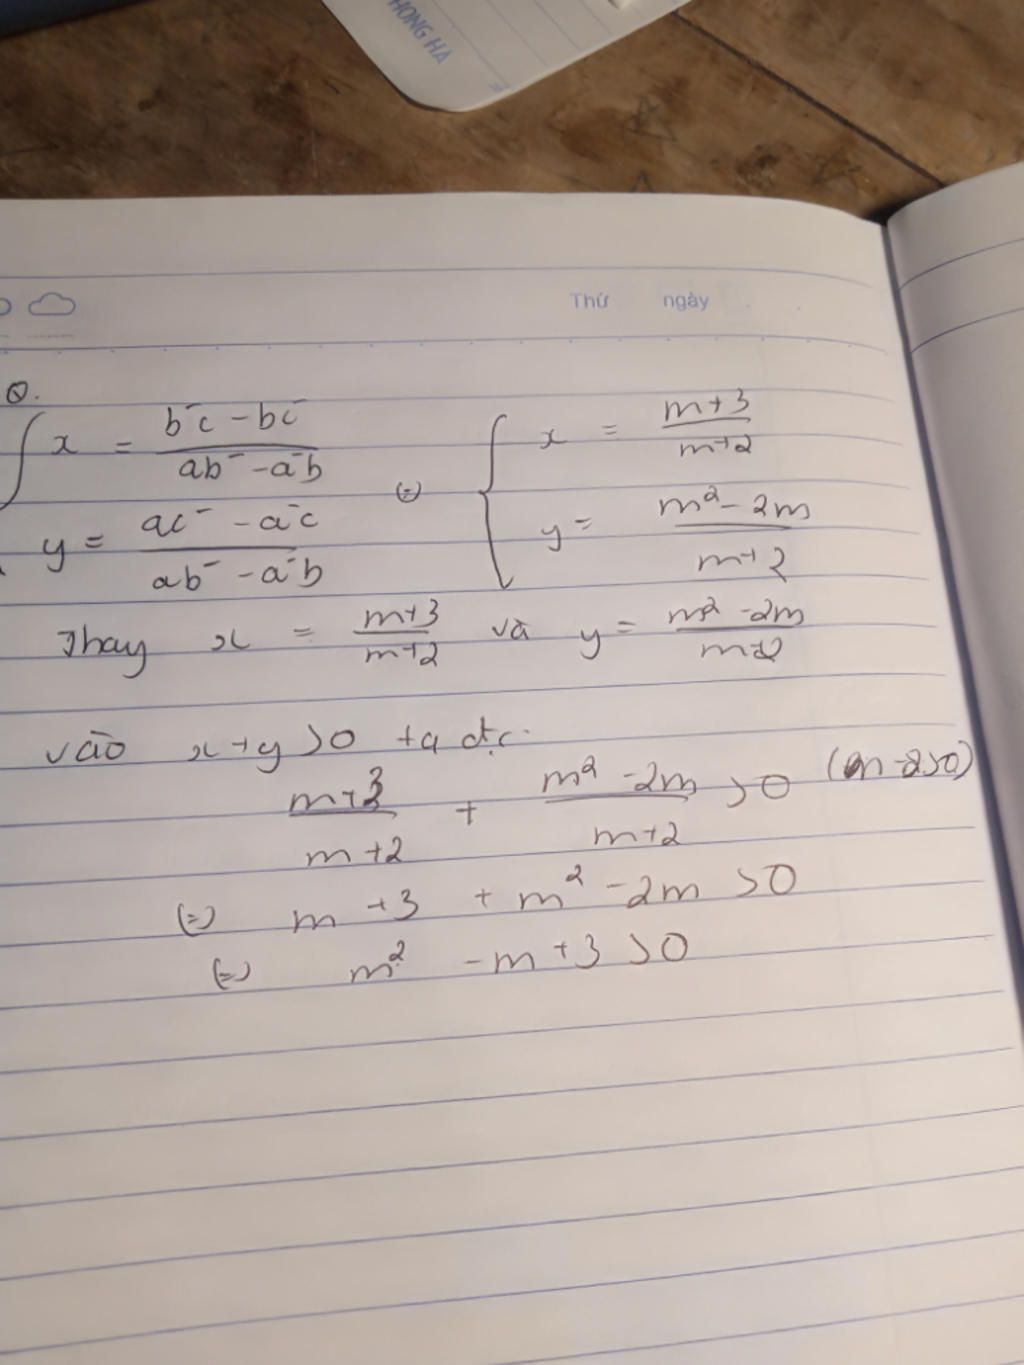 HONG HA
Thứ ngày
Q.
x = (b⁻c - bc⁻)/(ab⁻ - a⁻b) (=) x = (m+3)/(m+2)
y = (ac⁻ - a⁻c)/(ab⁻ - a⁻b) y = (m² - 2m)/(m+2)
Thay x = (m+3)/(m+2) và y = (m² - 2m)/(m+2)
vào x+y>0 ta đ.c.
(m+3)/(m+2) + (m² - 2m)/(m+2) > 0 (m-2>0)
(=) m + 3 + m² - 2m > 0
(=) m² - m + 3 > 0